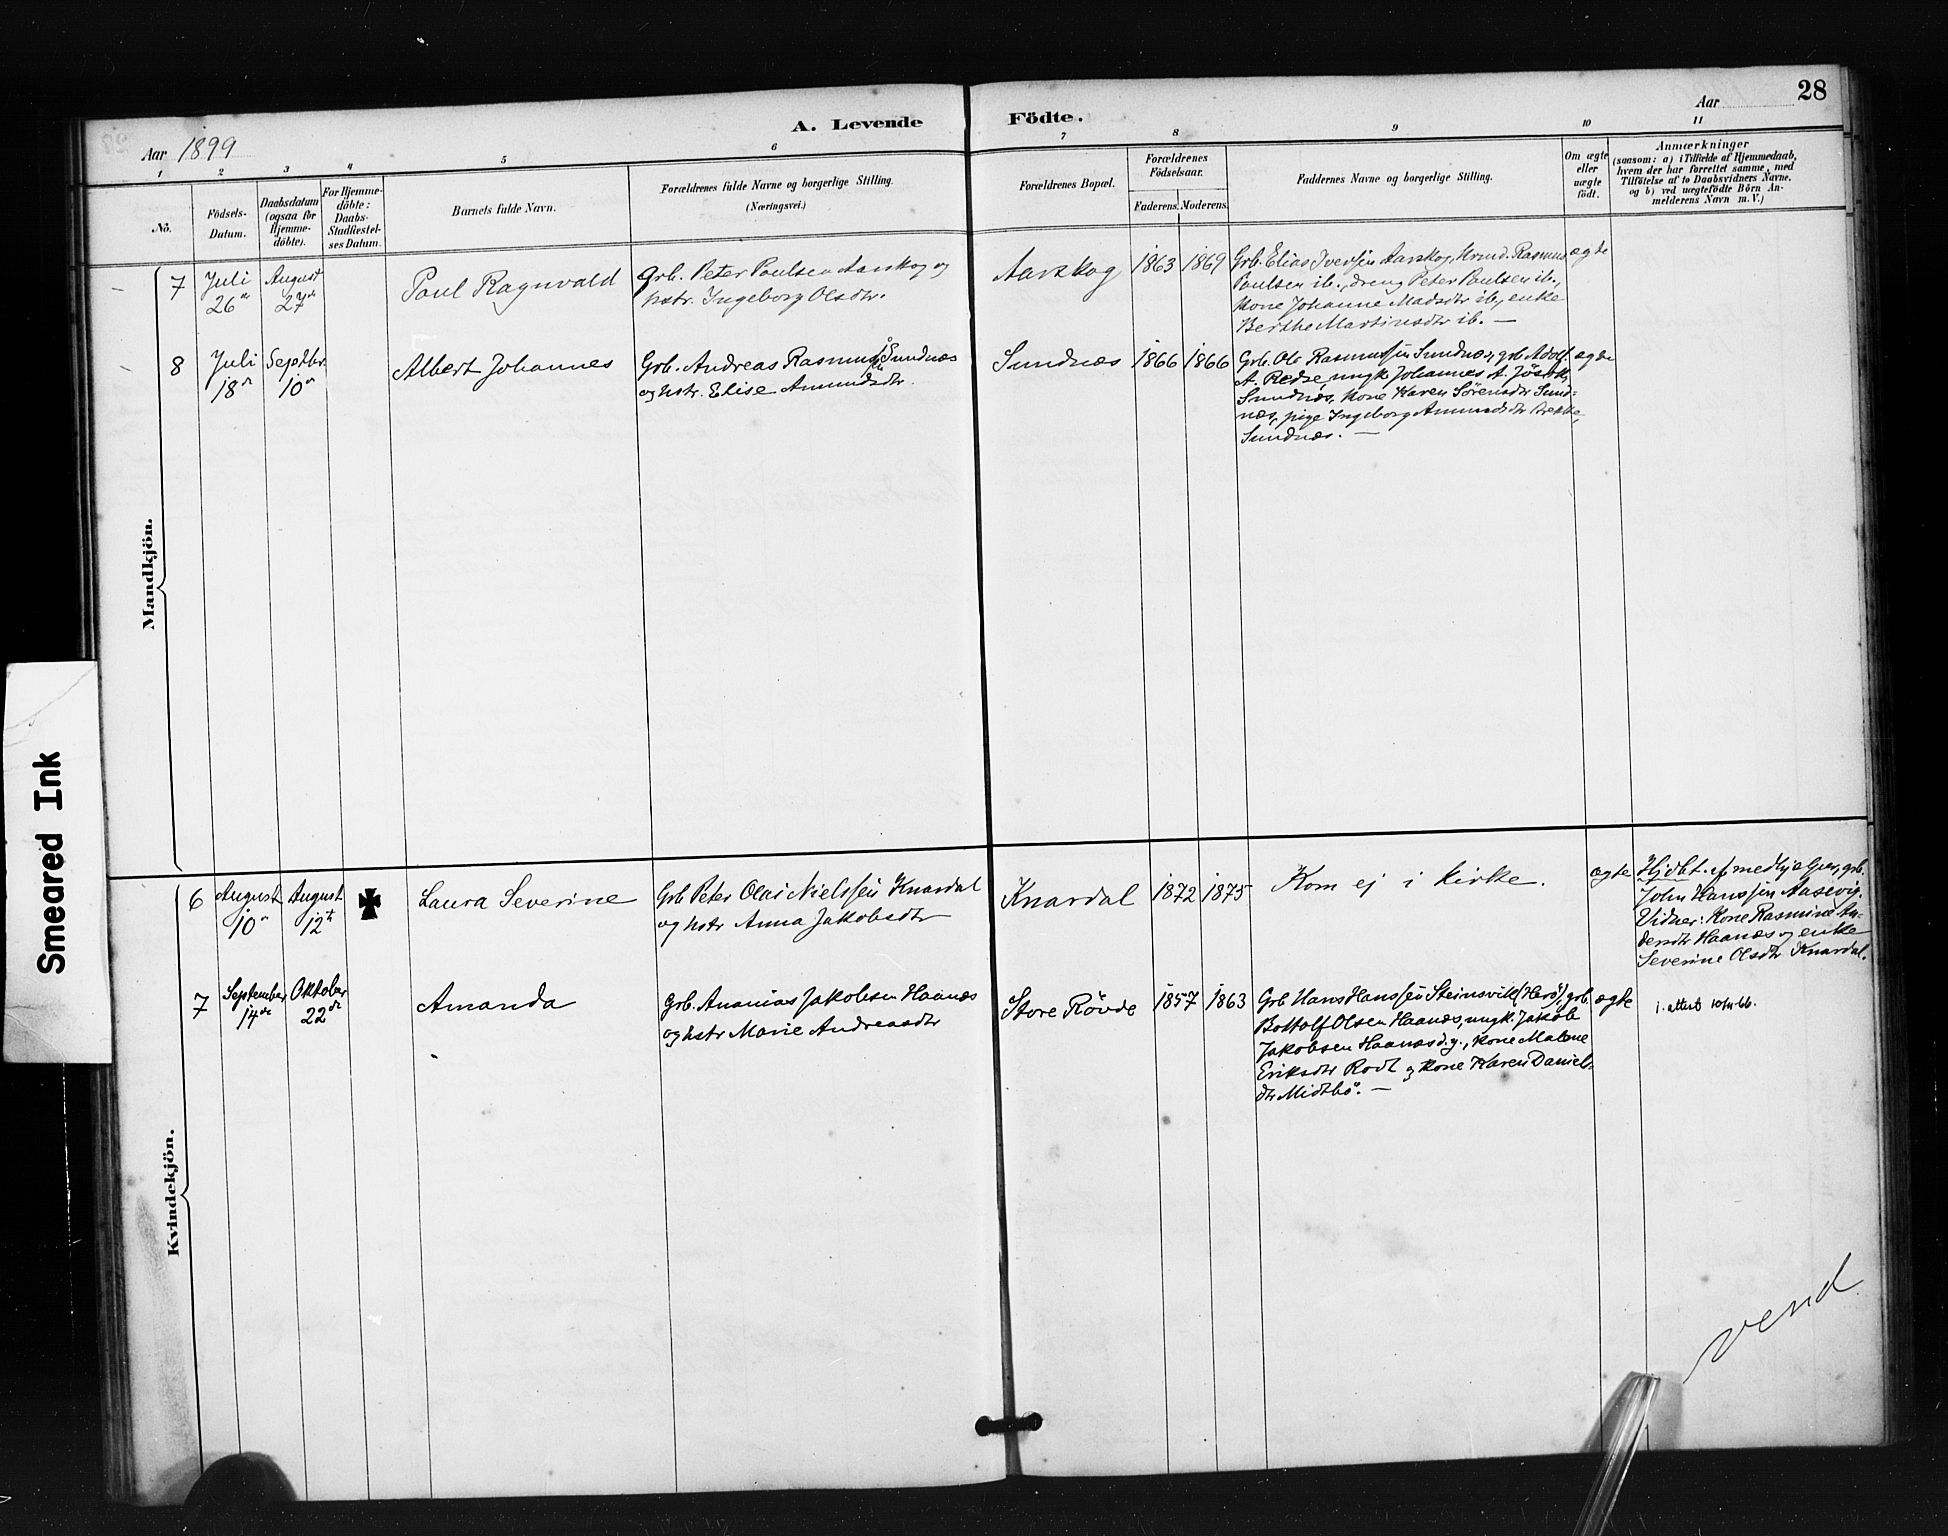 28
A. Levende Födte.
Aar 1899
Aar
1 2 3 4 5 6 7 8 9 10 11
No.
Födsels-
Datum.
Daabsdatum
(ogsaa for
Hjemme-
döbte).
For Hjemme-
döbte:
Daabs-
Stadfæstel-
ses Datum.
Barnets fulde Navn.
Forældrenes fulde Navne og borgerlige Stilling.
(Næringsvei.)
Forældrenes Bopæl.
Forældrenes
Födselsaar.
Faderens. Moderens.
Faddernes Navne og borgerlige Stilling.
Om ægte
eller
uægte
født.
Anmærkninger
(saasom: a) i Tilfælde af Hjemmedaab,
hvem der har forrettet samme, med
Tilföielse af to Daabsvidners Navne.
og b) ved uægtefödte Börn An-
melderens Navn m. V.)
Mandkjön.
7
Juli
26de
August
27de
Paul Ragnvald
Grb. Peter Paulsen Aarskog og
hstr. Ingeborg Olsdtr.
Aarskog
1863
1869
Grb. Elias Iverssen Aarskog, Rasmus
Paulsen ib., dreng Peter Paulsen ib.,
kone Johanne Madsdtr ib., enke
Berthe Martinusdtr ib. —
ægte
8
Juli
18de
Septbr.
10de
Albert Johannes
Grb. Andreas Rasmussen Sundnæs
og hstr. Elise Amundsdtr.
Sundnæs
1866
1866
Grb. Ole Rasmussen Sundnæs, grb. Adolf
A. Redse, ungk. Johannes A.
Sundnæs, kone Karen Sörensdtr Sund-
næs, pige Ingeborg Amundsdtr
Sundnæs. —
ægte
Kvindekjön.
6
August
10de
August
12te
✠
Laura Severine
Grb. Peter Olai Nielssen Knardal
og hstr Anna Jakobsdtr
Knardal
1872
1875
Kom ej i kirke.
ægte
Hjdbt. af medhjælper, grb.
John Hanssen Aasevig.
Vidner: Kone Rasmine An-
dersdtr Haanæs og enke
Severine Olsdtr Knardal.
7
September
14de
Oktober
22de
Amanda
Grb. Ananias Jakobsen Haanæs
og hstr Marie Andreasdtr
Store Rövde
1857
1863
Grb. Hans Hanssen Steinsvik (Herö), grb.
Bottolf Olsen Haanæs, ungk. Jakob
Jakobsen Haanæs d.y., kone Malene
Eriksdtr Rodt og kone Karen Daniels-
dtr Midtbö. —
ægte
vend
Smeared Ink